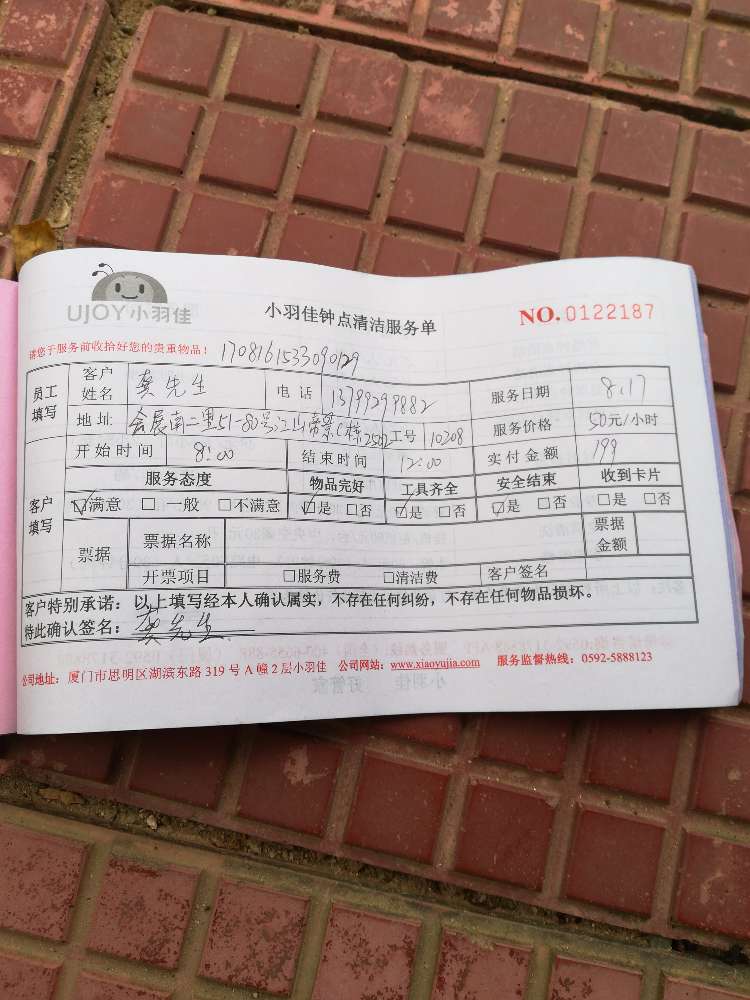 UJOY小羽佳
小羽佳钟点清洁服务单
NO.0122187
请您于服务前收拾好您的贵重物品！ 1708161533090129
员工填写 客户姓名 龚先生 电话 13799299882 服务日期 8.17
地址 会展南二里51-80号江山帝景C栋2502 工号 10208 服务价格 50元/小时
客户填写 开始时间 8:00 结束时间 12:00 实付金额 199
服务态度 物品完好 工具齐全 安全结束 收到卡片
☑满意 □一般 □不满意 ☑是 □否 ☑是 □否 ☑是 □否 □是 □否
票据 票据名称 票据金额
开票项目 □服务费 □清洁费 客户签名
客户特别承诺：以上填写经本人确认属实，不存在任何纠纷，不存在任何物品损坏.
特此确认签名：龚先生
公司地址：厦门市思明区湖滨东路319号A幢2层小羽佳 公司网站：www.xiaoyujia.com 服务监督热线：0592-5888123